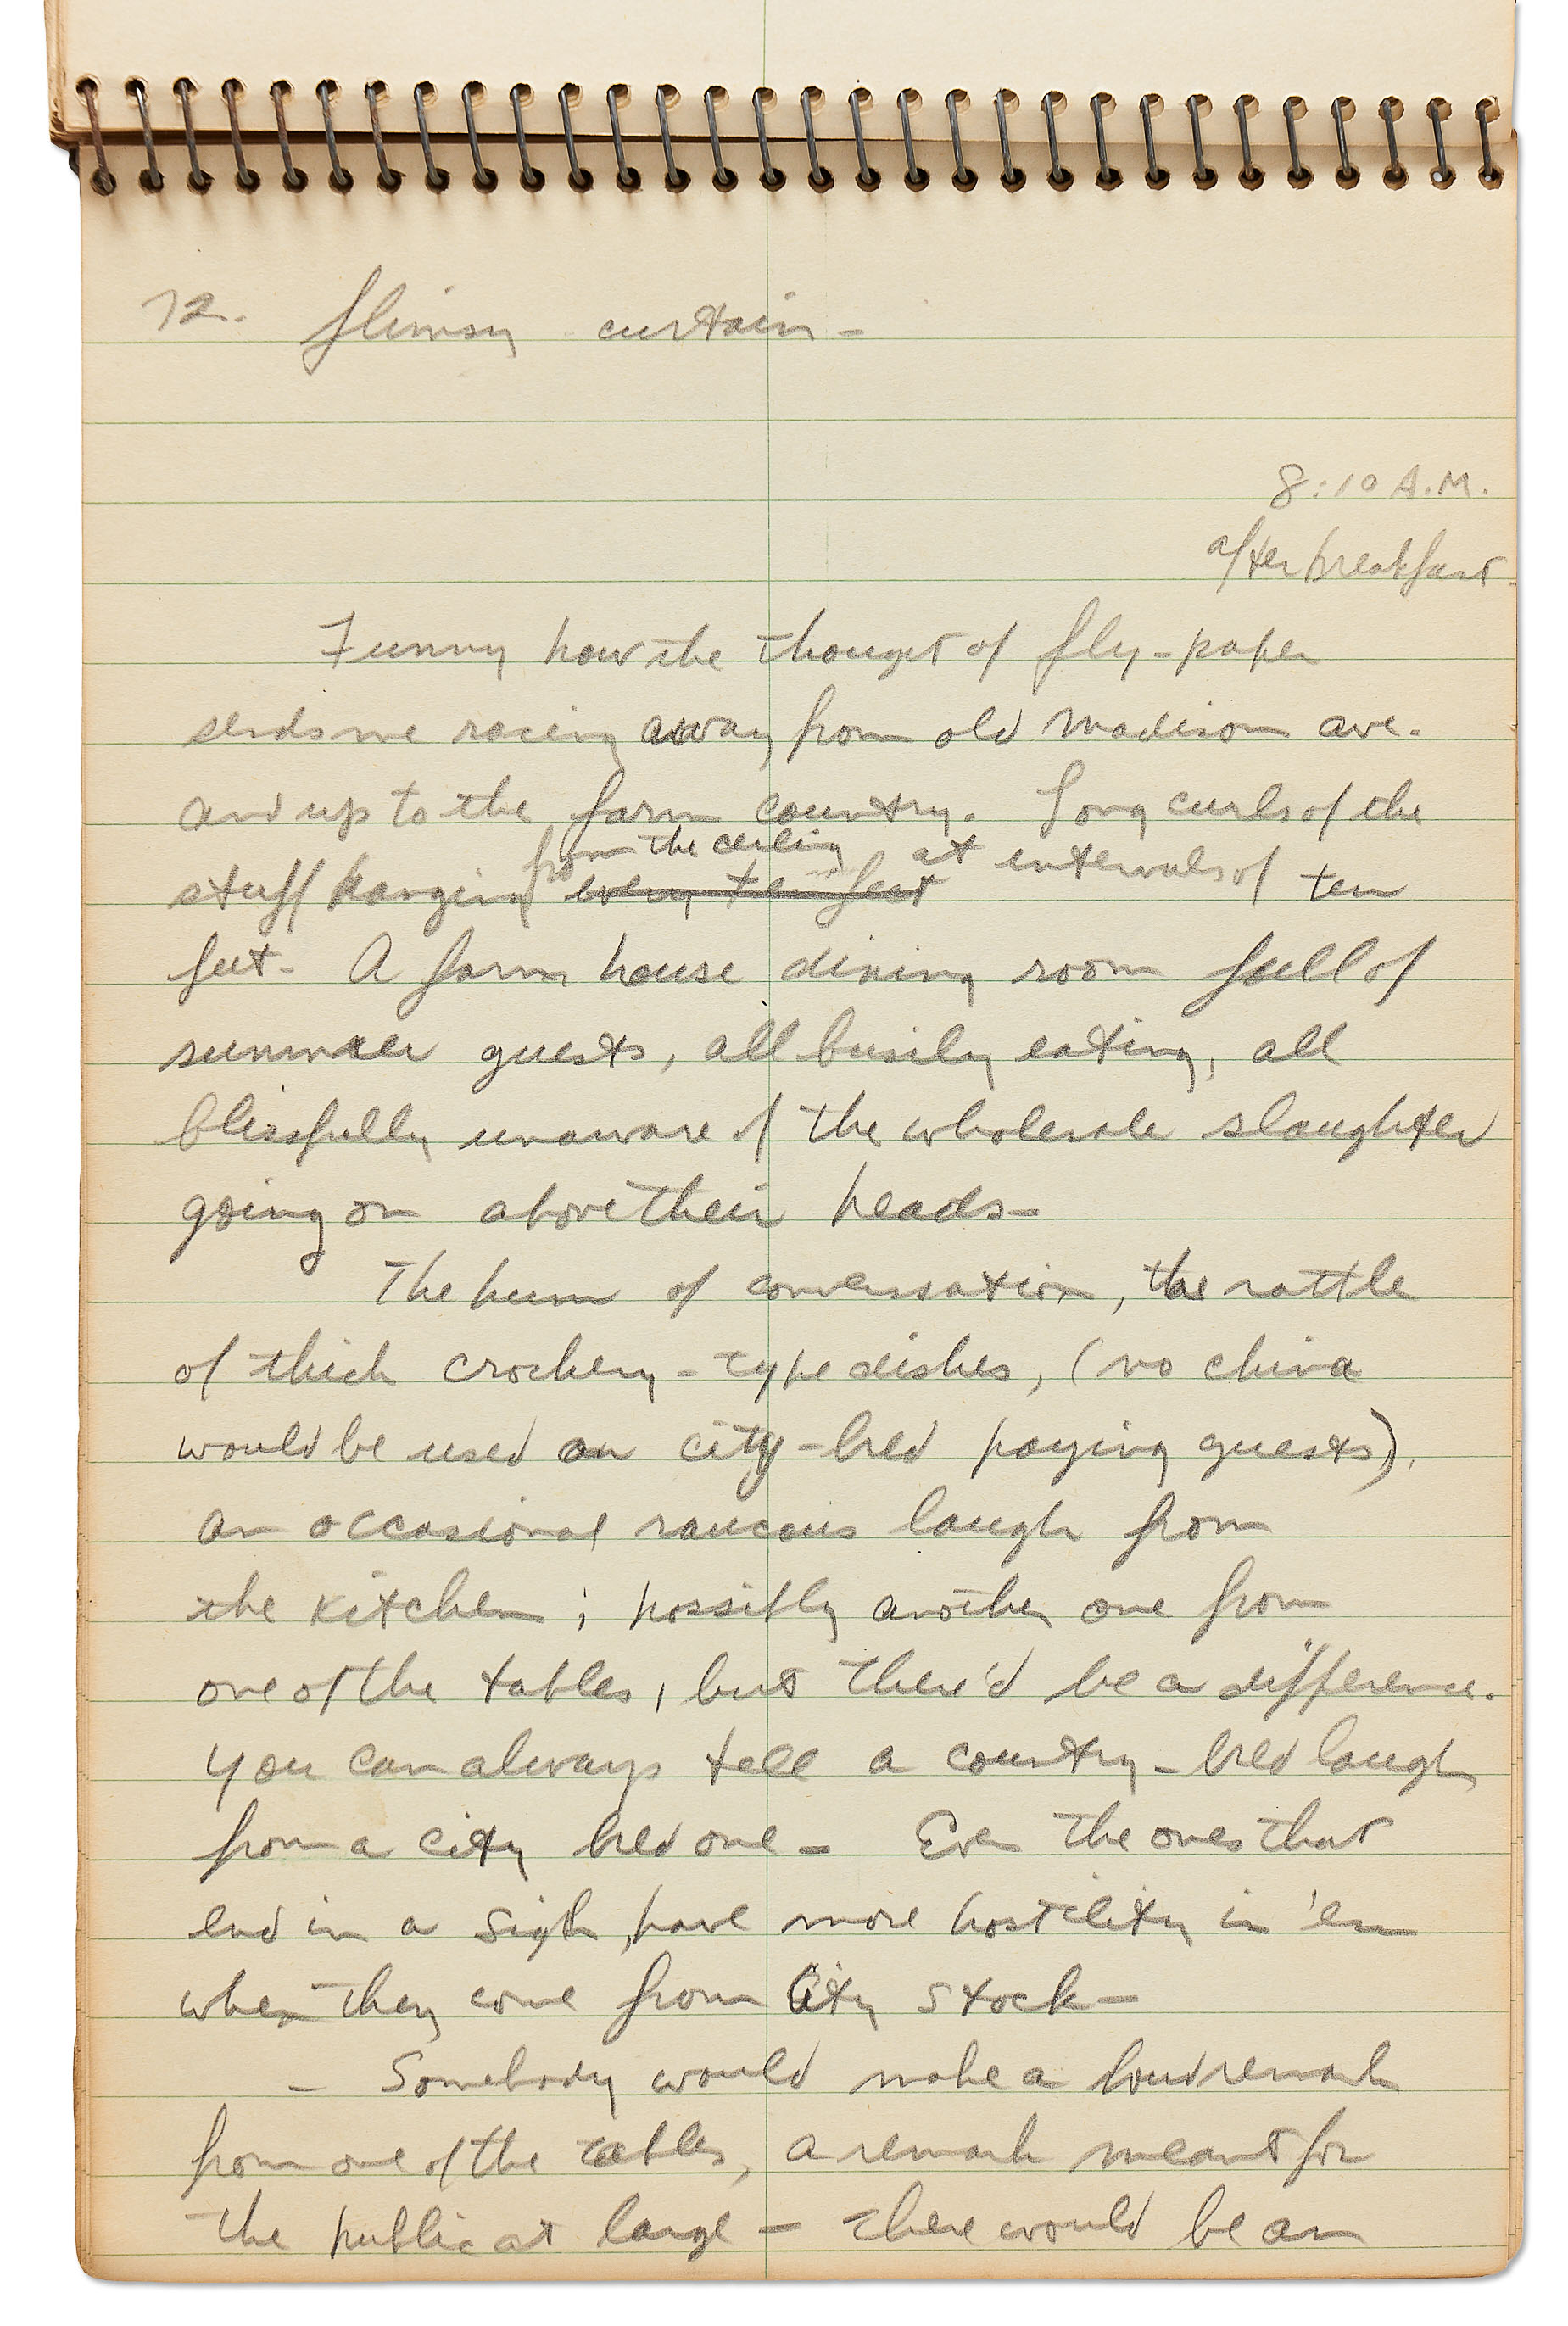 72. flimsy curtain —
8:10 A.M.
after breakfast.
Funny how the thought of fly-paper
sends me racing away from old Madison ave.
and up to the farm country. Long curls of the
stuff hanging from the ceiling every ten feet at intervals of ten
feet. A farm house dining room full of
summer guests, all busily eating, all
blissfully unaware of the wholesale slaughter
going on above their heads —
The hum of conversation, the rattle
of thick crockery-type dishes, (no china
would be used on city-bred paying guests),
an occasional raucous laugh from
the kitchen; possibly another one from
one of the tables, but there'd be a difference.
You can always tell a country-bred laugh
from a city bred one — Even the ones that
end in a sigh, have more hostility in 'em
when they come from City stock —
— Somebody would make a loud remark
from one of the tables, a remark meant for
the public at large — there would be an